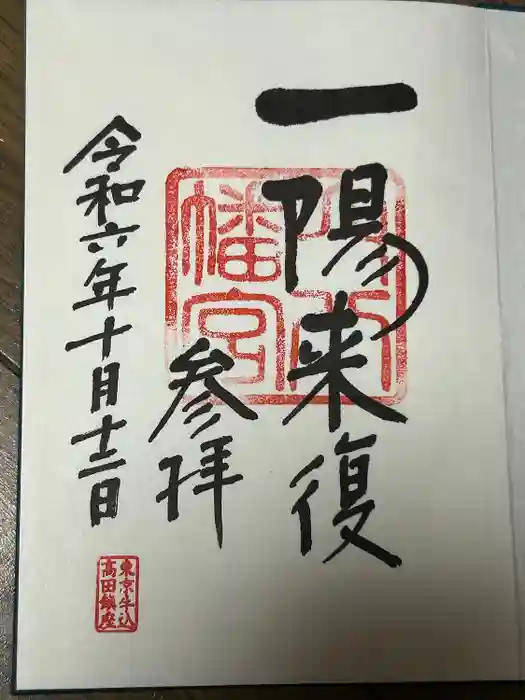 一陽来復
幡宮
参拝
令和六年十月十二日
東京牛込
高田鎮座